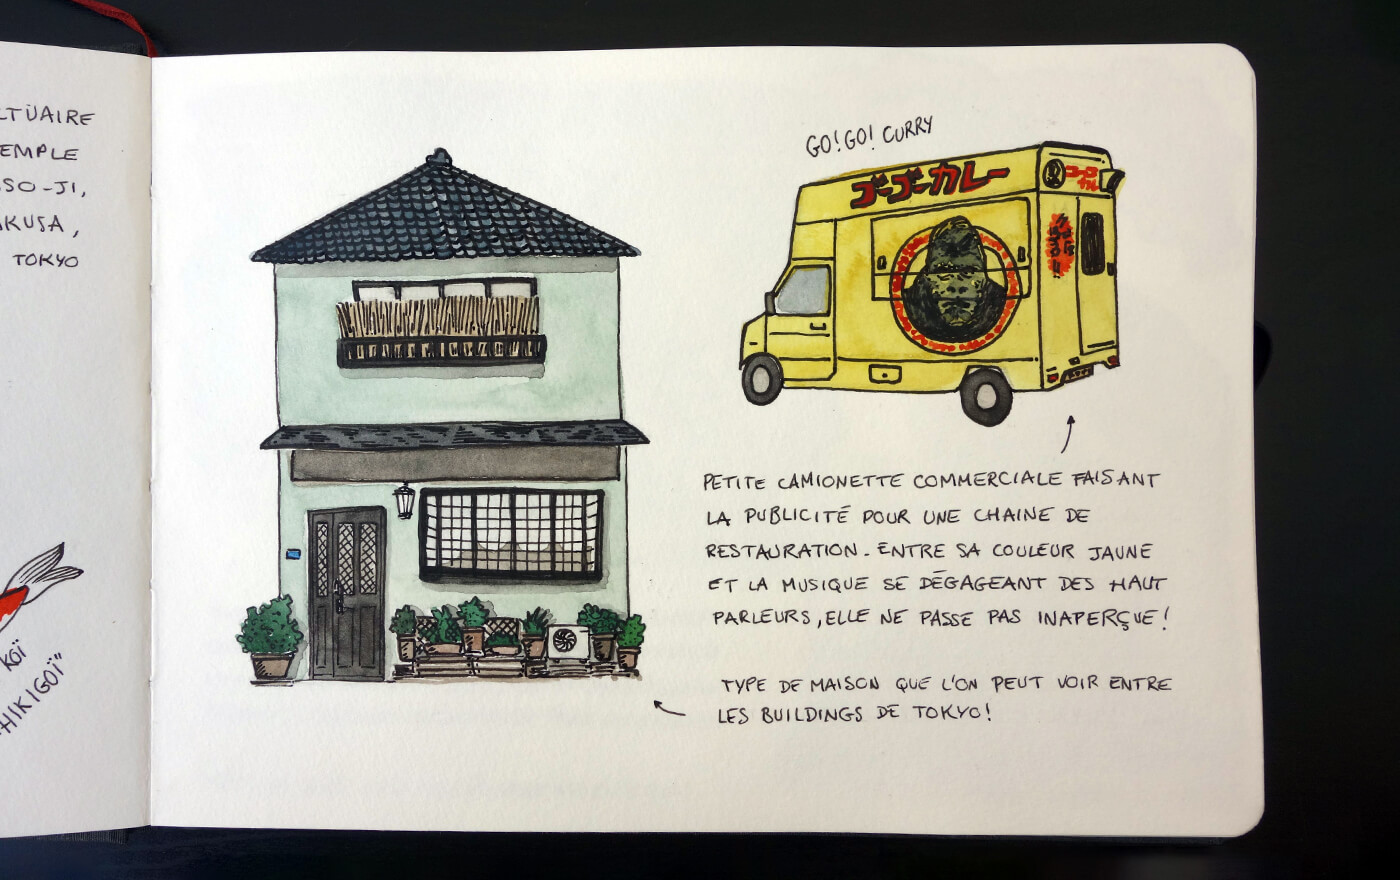 CTUAIRE
EMPLE
SO-JI,
AKUSA,
TOKYO
KOÏ
HIKIGOÏ"
GO! GO! CURRY
ゴーゴーカレー
ゴーゴー
カレー
PETITE CAMIONETTE COMMERCIALE FAISANT
LA PUBLICITÉ POUR UNE CHAINE DE
RESTAURATION. ENTRE SA COULEUR JAUNE
ET LA MUSIQUE SE DÉGAGEANT DES HAUT
PARLEURS, ELLE NE PASSE PAS INAPERÇUE!
TYPE DE MAISON QUE L'ON PEUT VOIR ENTRE
LES BUILDINGS DE TOKYO!